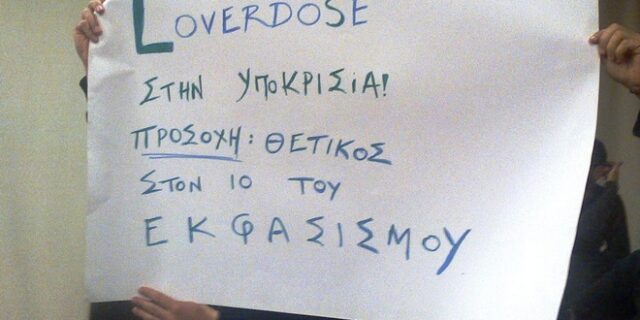 LOVERDOSE
ΣΤΗΝ ΥΠΟΚΡΙΣΙΑ!
ΠΡΟΣΟΧΗ: ΘΕΤΙΚΟΣ
ΣΤΟΝ ΙΟ ΤΟΥ
ΕΚΦΑΣΙΣΜΟΥ